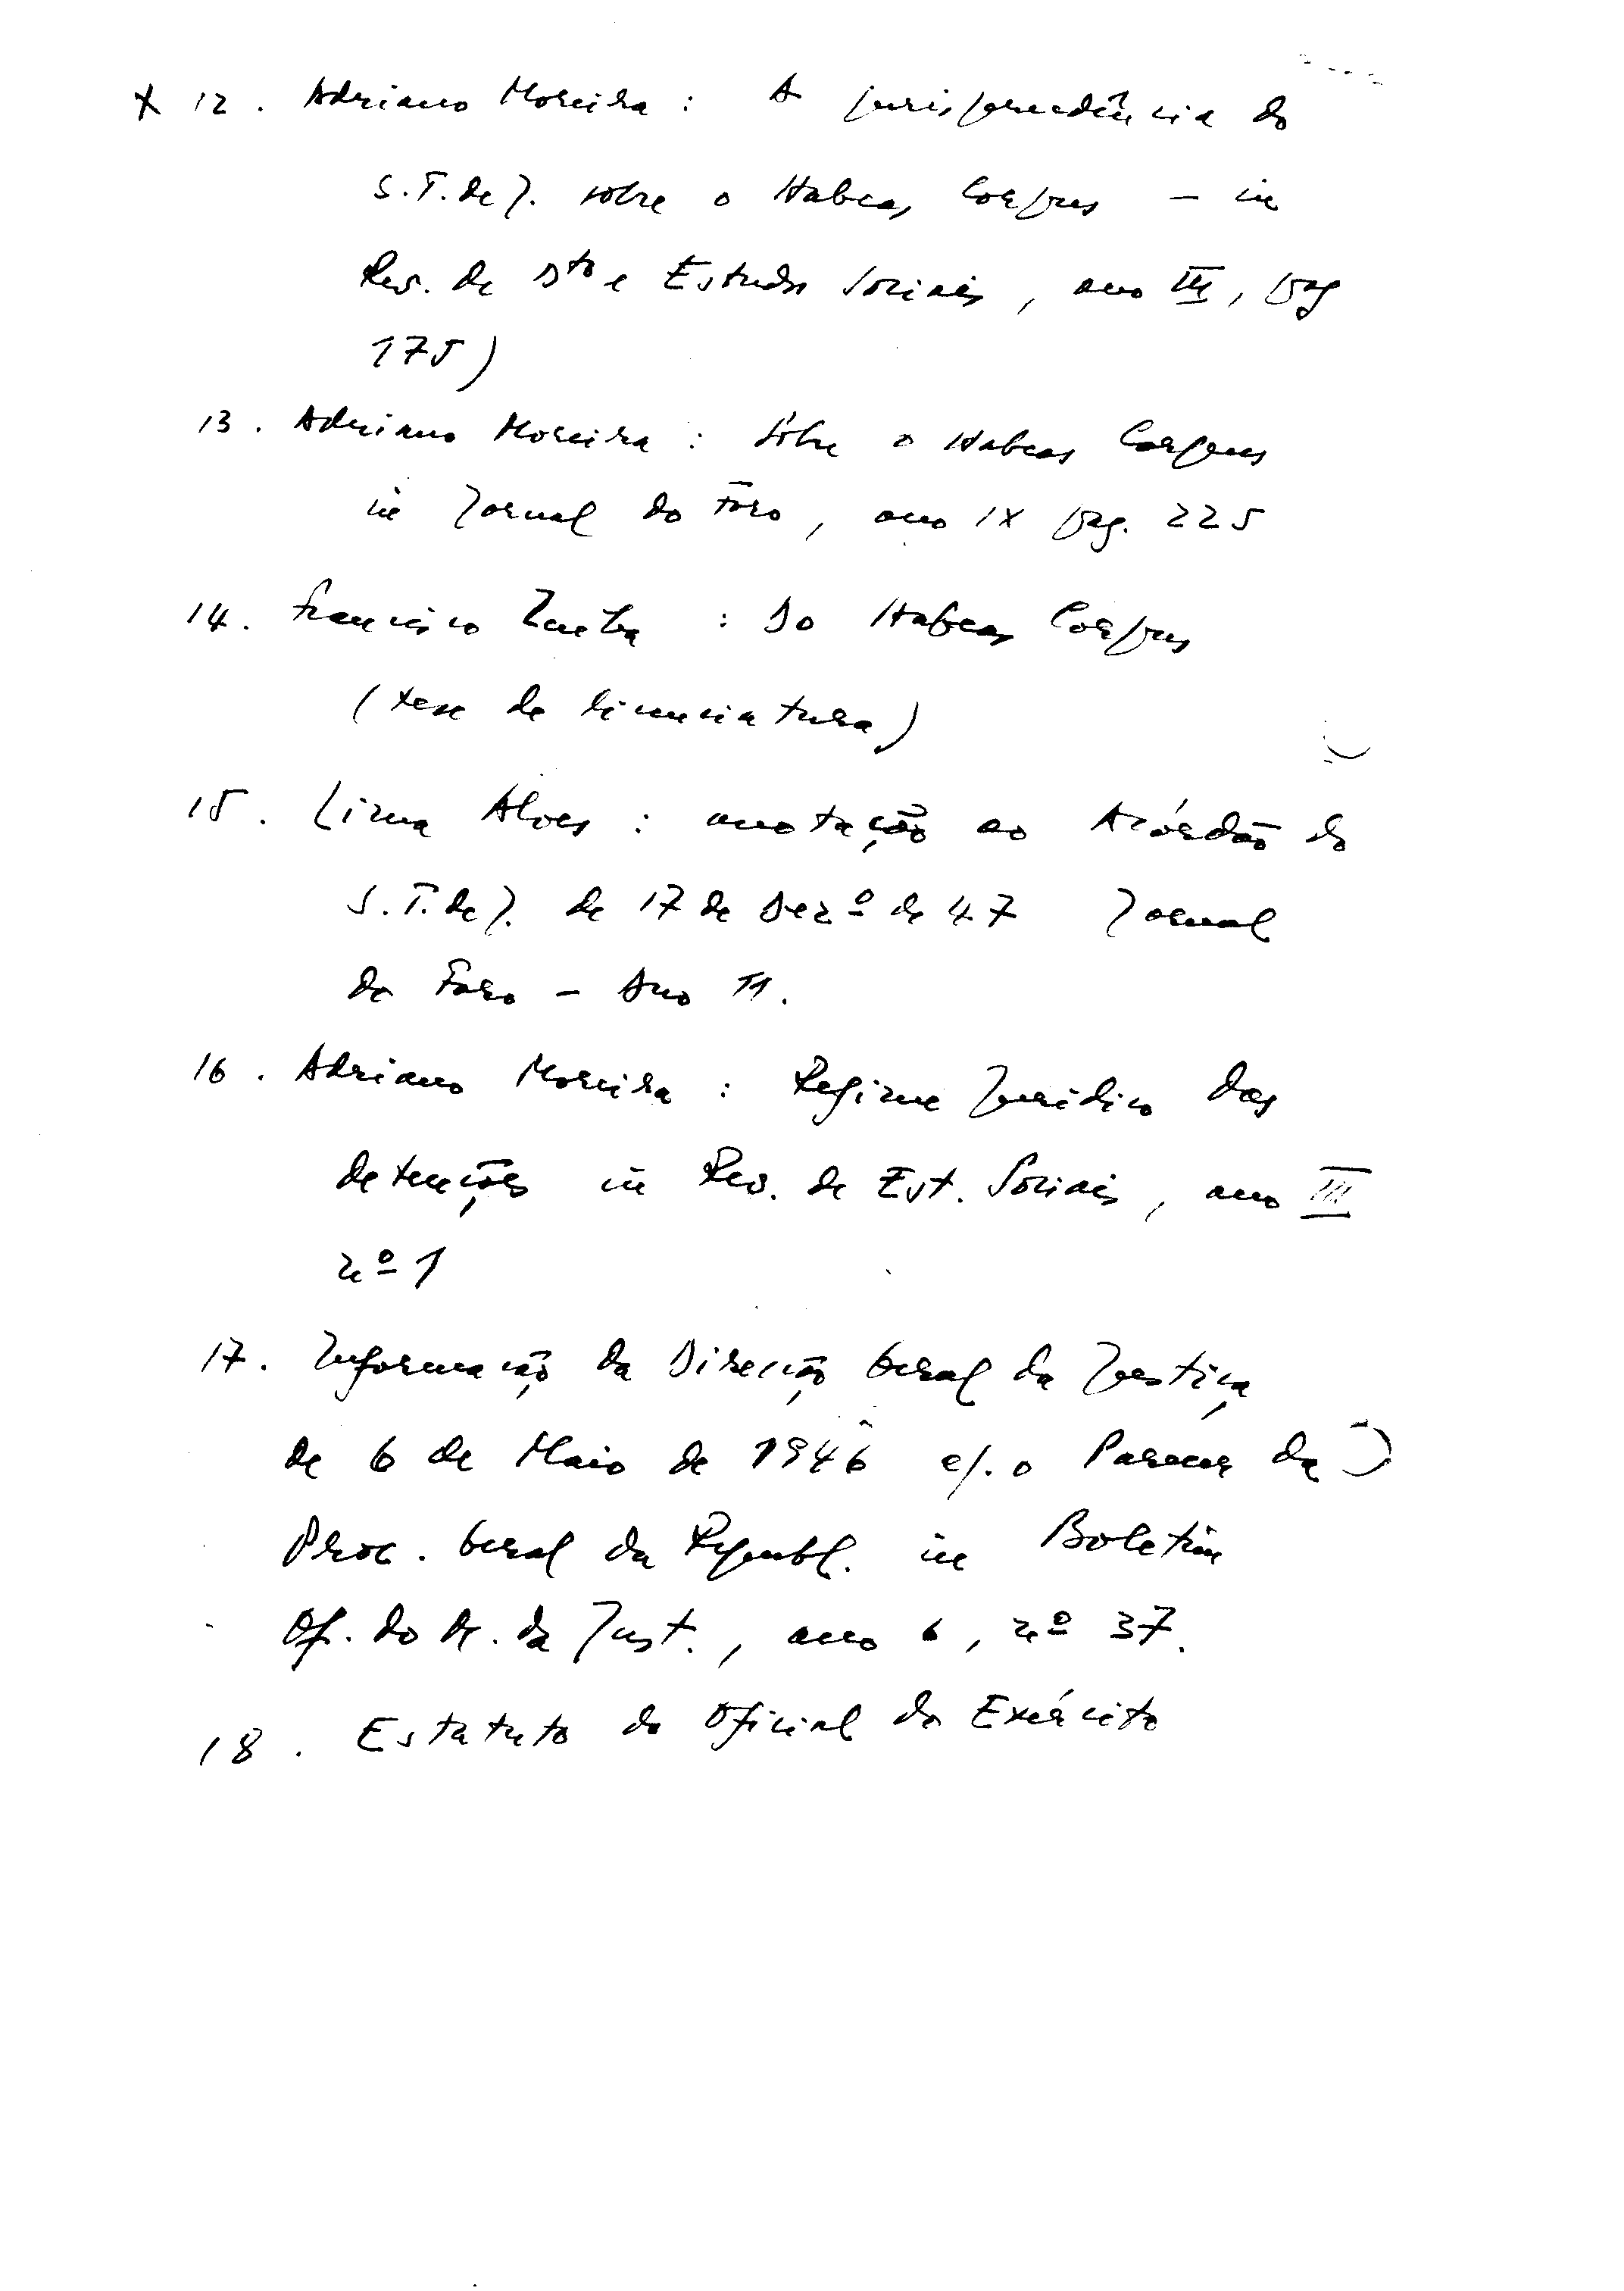 x 12. Adriano Moreira: A jurisprudência do
S.T. de J. sobre o Habeas Corpus – in
Rev. de Dto e Estudos Sociais, ano III, pag
175)
13. Adriano Moreira: Sôbre o Habeas Corpus
in Jornal do Fôro, ano IX pag. 225
14. Francisco : Do Habeas Corpus
(tese de licenciatura)
15. Lima Alves: anotação ao Acórdão do
S.T. de J. de 17 de Dezº de 47 Jornal
do Foro – Ano 11.
16. Adriano Moreira: Regime Jurídico das
detenções in Rev. de Est. Sociais, ano III
nº 1
17. Informação da Direcção Geral da Justiça
de 6 de Maio de 1946 e/. o Parecer da
Proc. Geral da Republ. in Boletim
Of. do M. da Just., ano 6, nº 37.
18. Estatuto do Oficial do Exército